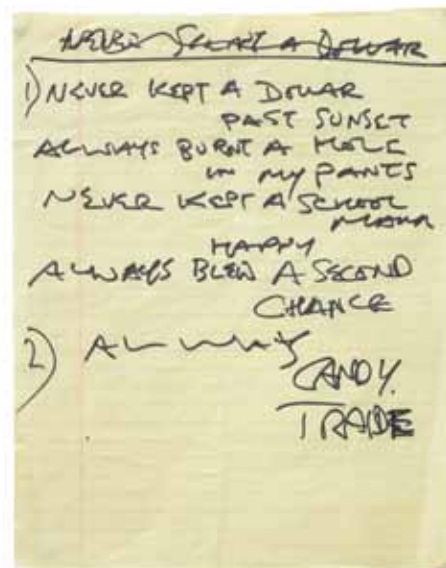 NEVER A DOLLAR
1) NEVER KEPT A DOLLAR
PAST SUNSET
ALWAYS BURNT A HOLE
IN MY PANTS
NEVER KEPT A SCHOOL
MAMA
HAPPY
ALWAYS BLEW A SECOND
CHANCE
2) ALWAY
CANDY.
TRADE